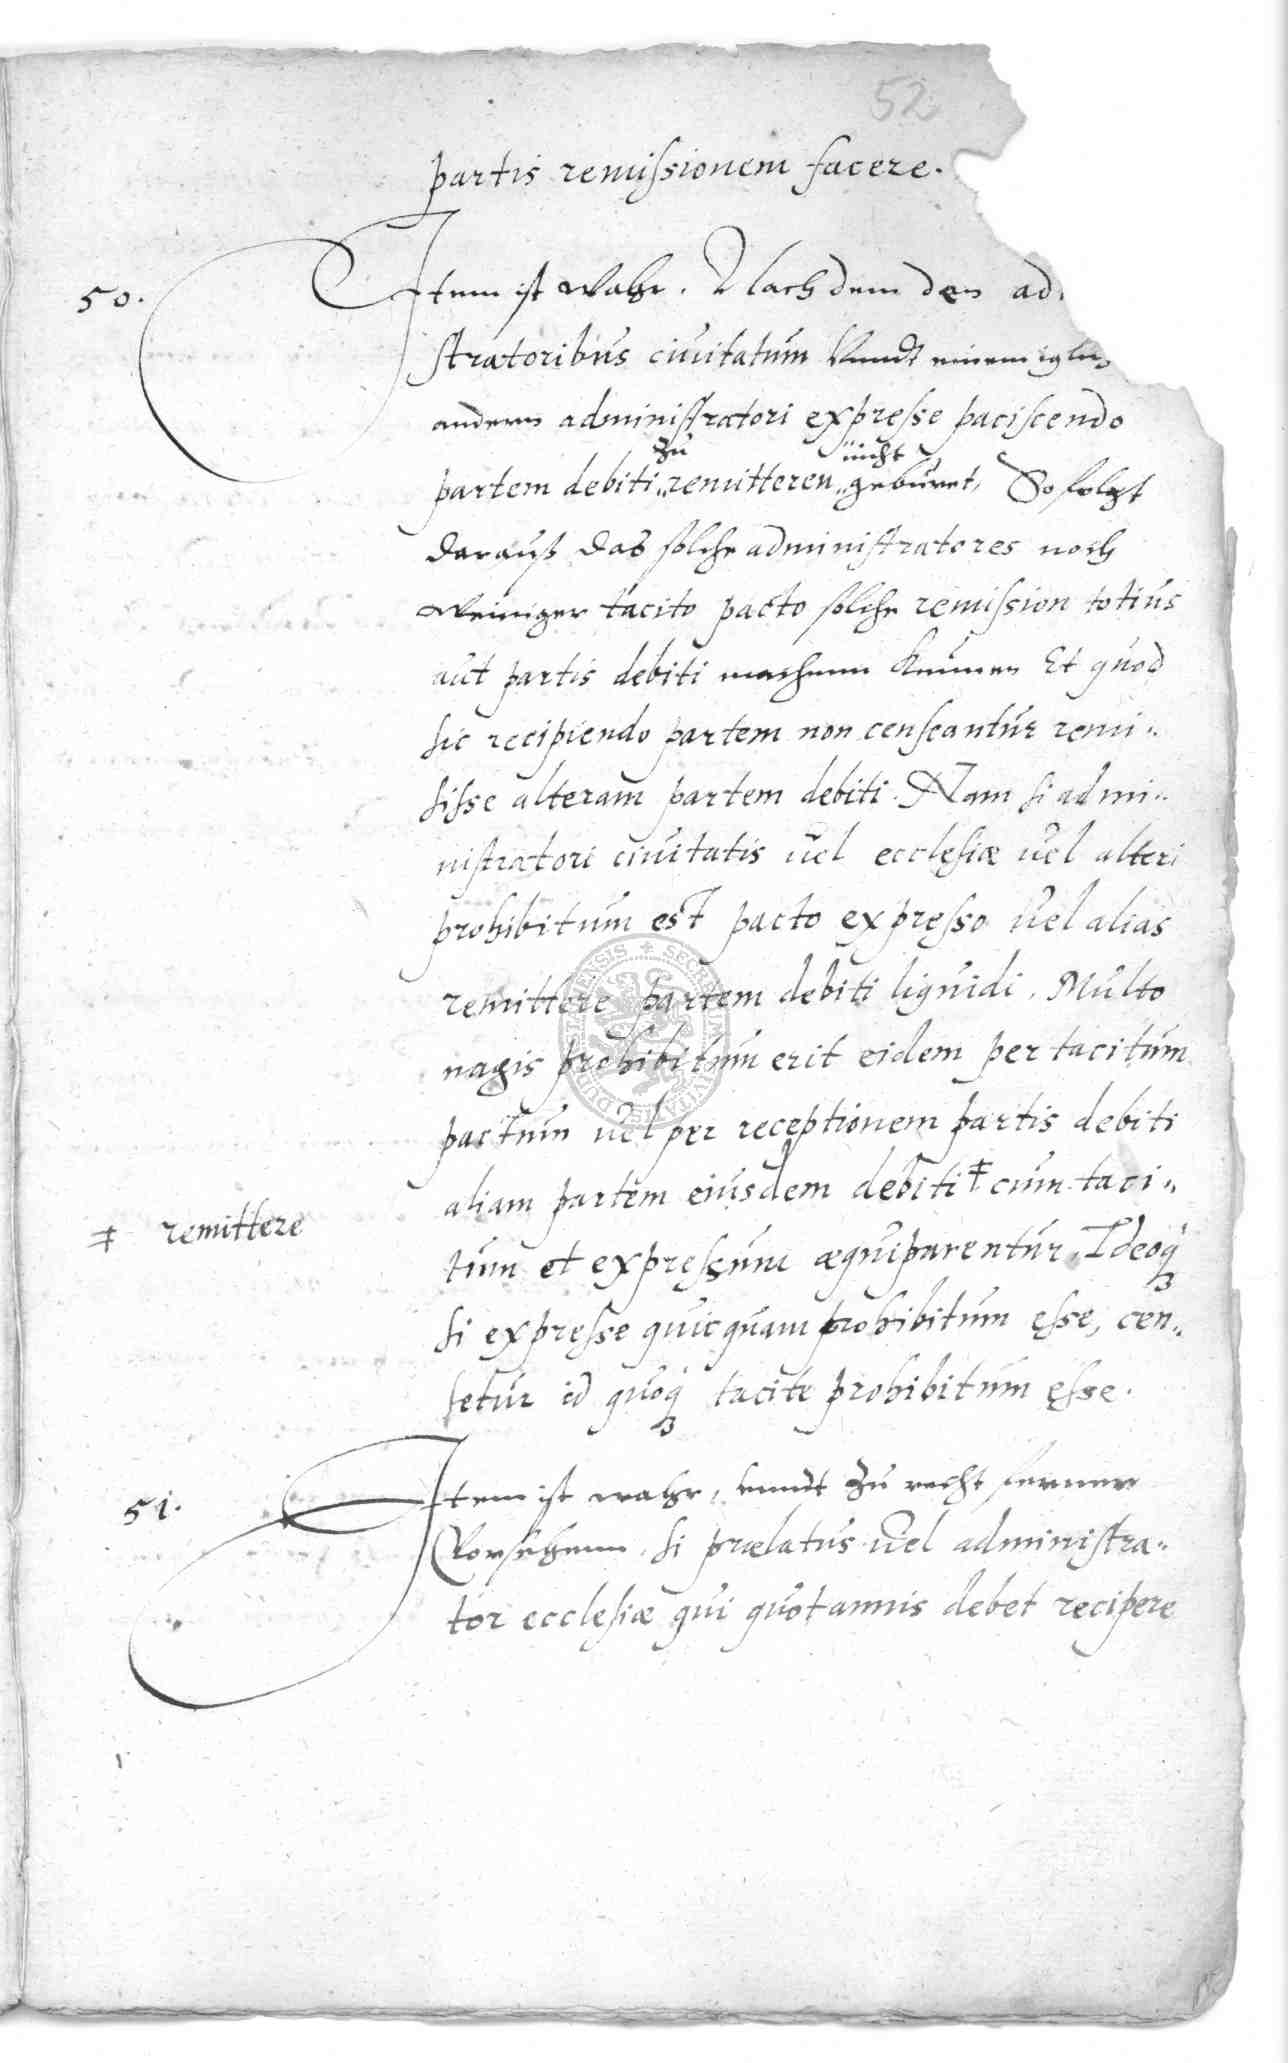 52
partis remissionem facere.
50. Item ist wahr. Nach dem den ad
stratoribus ciuitatum Vnndt einem
andern administratori expresse paciscendo
partem debiti zu remitteren nicht geburet, So folgt
darauß das solche administratores noch
weiniger tacito pacto solche remission totius
aut partis debiti machenn kunnen Et quod
sic recipiendo partem non censeantur remi„
sisse alteram partem debiti. Nam si admi„
nistratori ciuitatis uel ecclesiæ uel alteri
prohibitum est pacto expresso Vel alias
remittere partem debiti liquidi. Multo
magis prohibitum erit eidem per tacitum
pactum uel per receptionem partis debiti
aliam partem eiusdem debiti ‡ cum taci„
‡ remittere
tum et expressum æquiparentur, Ideoq
si expresse quicquam prohibitum esse, cen„
setur id quoq tacite prohibitum esse.
51. Item ist wahr, vnndt zu recht ferner
Vorsehenn. si prælatus Vel administra„
tor ecclesiæ qui quotannis debet recipere